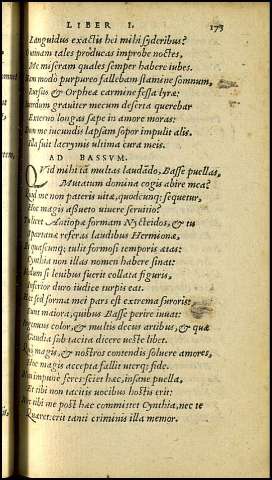 LIBER I. 173
Languidus exactis hei mihi syderibus?
O utinam tales producas improbe noctes,
Me miseram quales semper habere iubes.
Nam modo purpureo fallebam stamine somnum,
Rursus & Orpheæ carmine fessa lyræ:
Interdum grauiter mecum deserta querebar
Externo longas sæpe in amore moras:
Dum me iucundis lapsam sopor impulit alis.
Illa fuit lacrymis ultima cura meis.
AD BASSVM.
Quid mihi tã multas laudãdo, Basse puellas,
Mutatum domina cogis abire mea?
Quid me non pateris uita, quodcunq; sequetur,
Hoc magis assueto uiuere seruitio?
Tu licet Antiopæ formam Nycteidos, & tu
Spartanæ referas laudibus Hermionæ,
Et quascunq; tulit formosi temporis ætas:
Cynthia non illas nomen habere sinat:
Nedum si leuibus fuerit collata figuris,
Inferior duro iudice turpis eat.
Hæc sed forma mei pars est extrema furoris:
Sunt maiora, quibus Basse perire iuuat:
Ingenuus color, & multis decus artibus, & quæ
Gaudia sub tacita dicere ueste libet.
Quo magis, & nostros contendis soluere amores,
Hoc magis accepta fallit uterq; fide.
Non impune feres: sciet hæc, insane puella,
Et tibi non tacitis uocibus hostis erit:
Nec tibi me post hæc committet Cynthia, nec te
Quæret: erit tanti criminis illa memor.